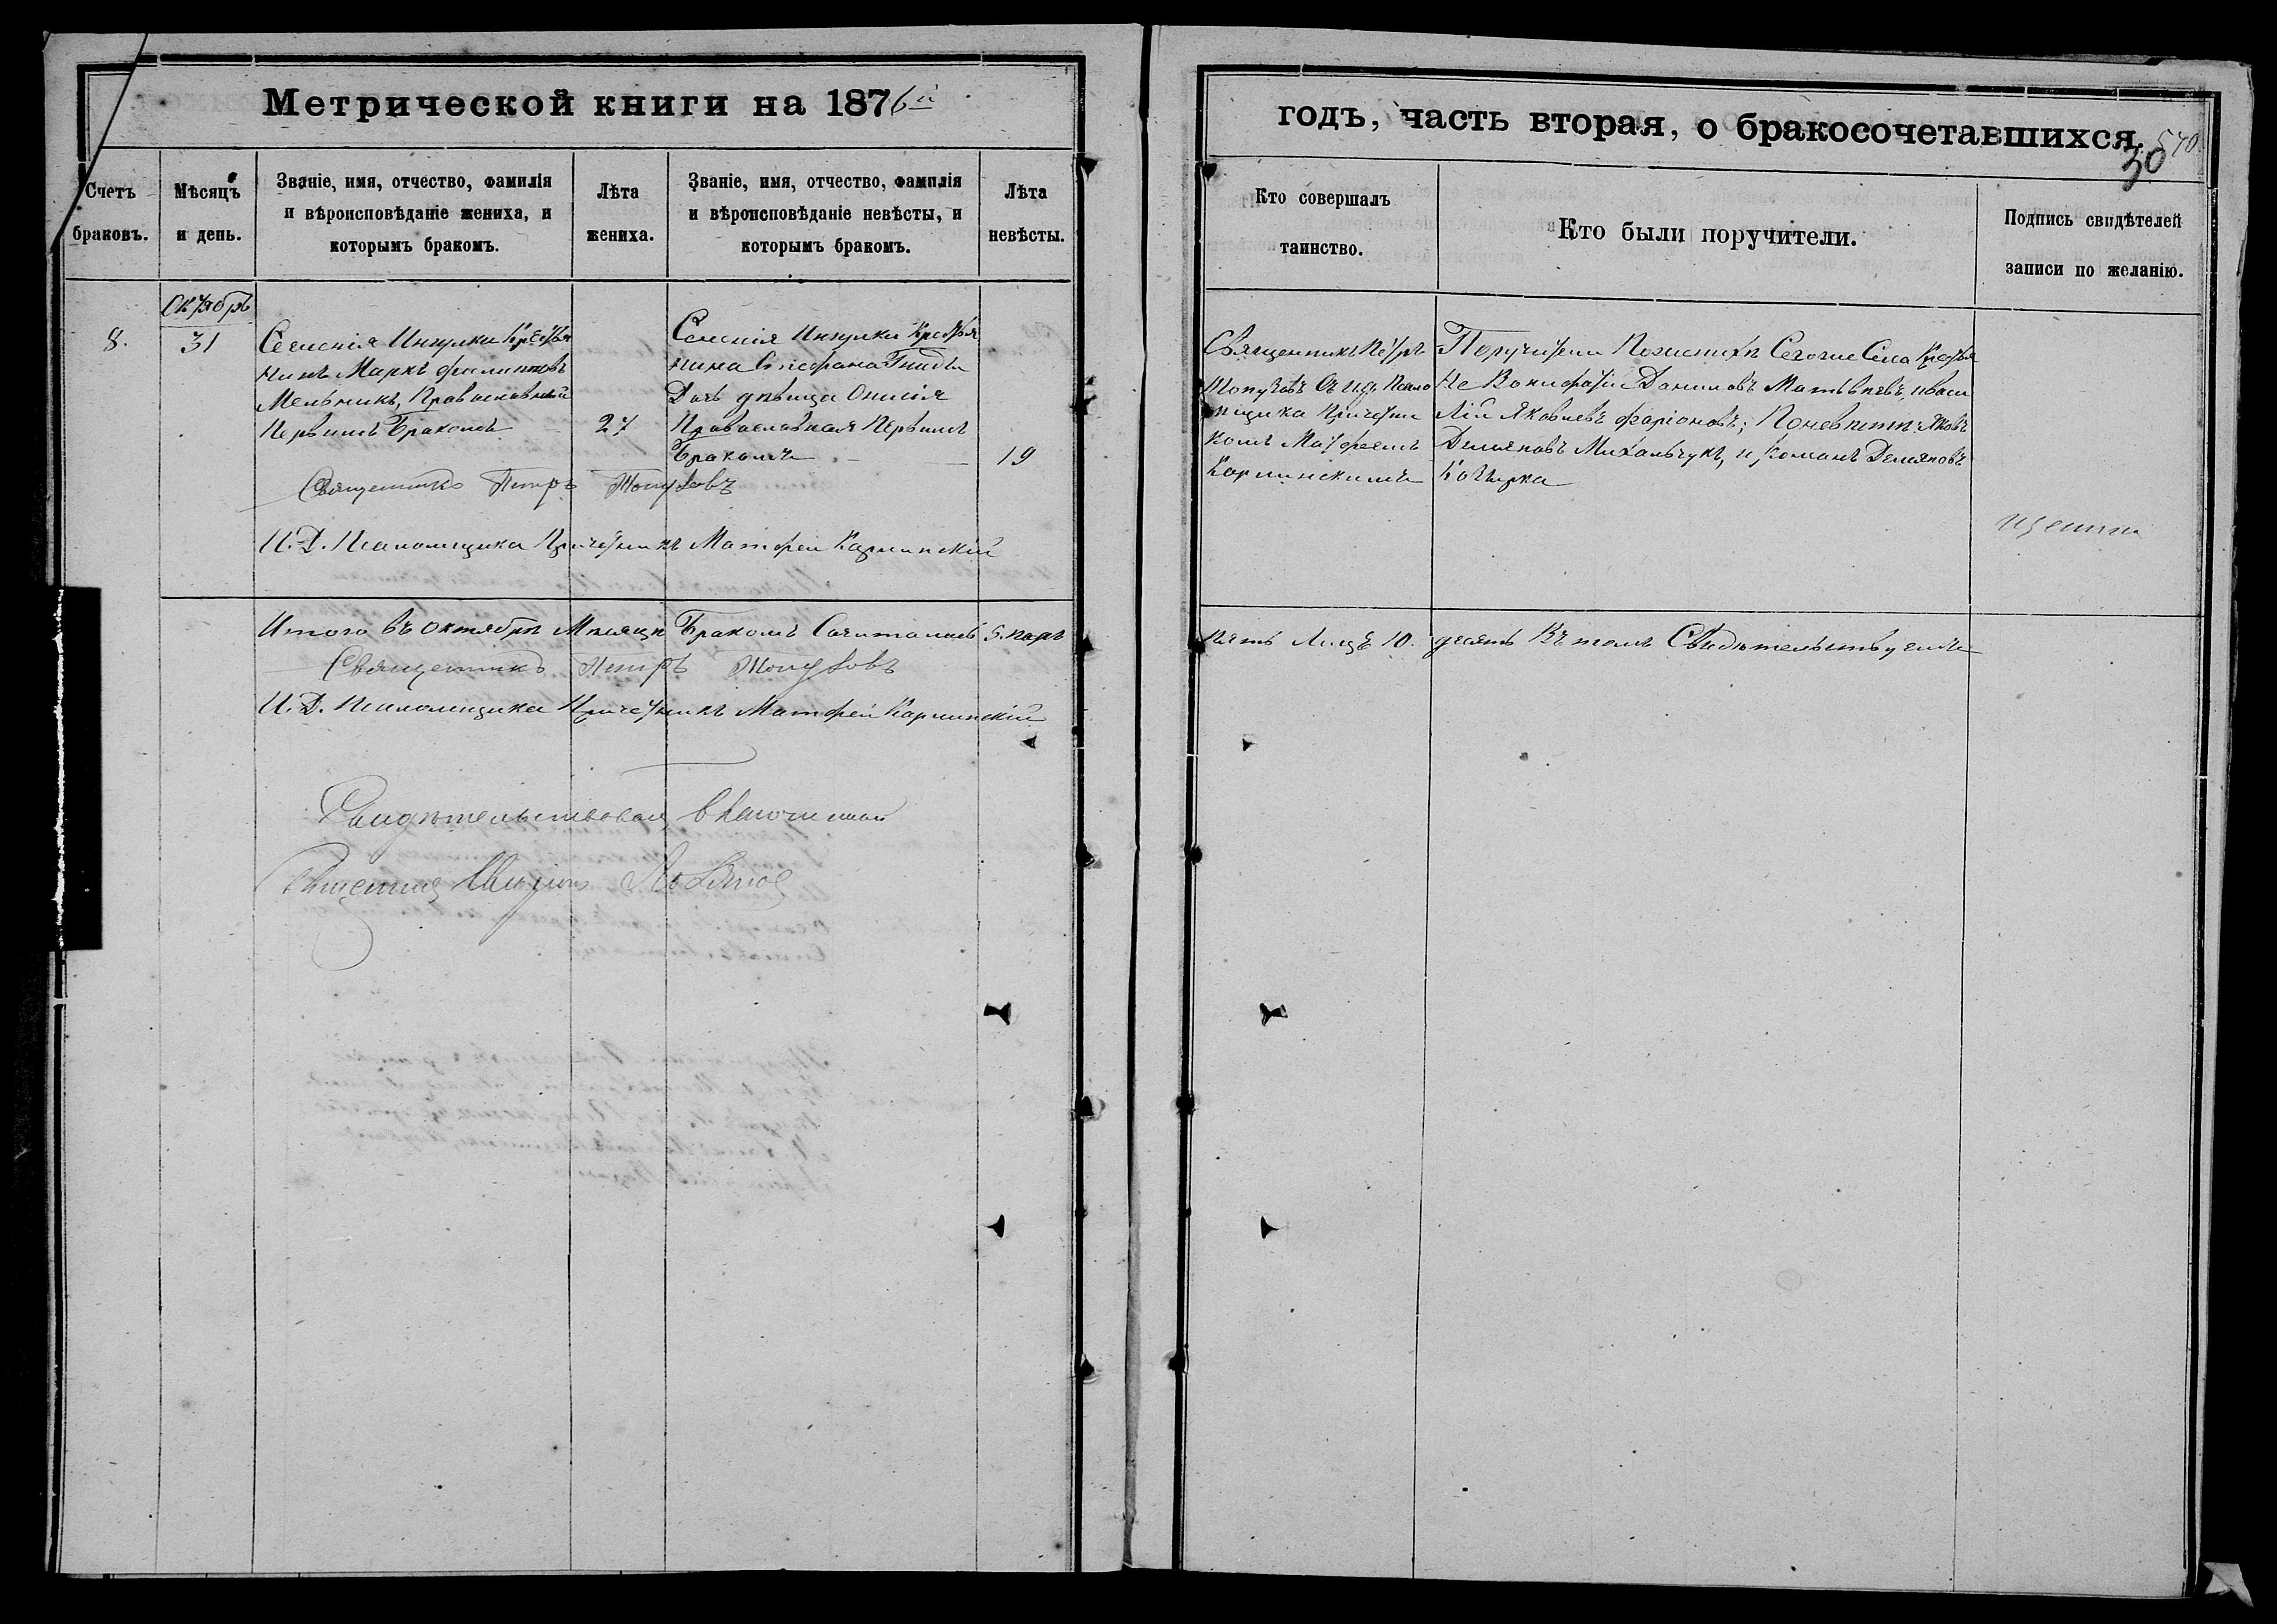 Метрической книги на 1876й
годъ, часть вторая, о бракосочетавшихся.
540
30
Счетъ браковъ.
Мѣсяцъ и день.
Званіе, имя, отчество, фамилія
и вѣроисповѣданіе жениха, и
которымъ бракомъ.
Лѣта
жениха.
Званіе, имя, отчество, фамилія
и вѣроисповѣданіе невѣсты, и
которымъ бракомъ.
Лѣта
невѣсты.
Кто совершалъ
таинство.
Кто были поручители.
Подпись свидѣтелей
записи по желанію.
Октябрь
8.
31
Селенія Инкулки Крестья
нинъ Маркъ Филиповъ
Мельникъ, Православный
Первымъ Бракомъ
27
Селенія Инкулки Крестья
нина Стефана Гниды
Дочь дѣвица Онисія
Православная Первымъ
Бракомъ
19
Священникъ Петръ
Топузовъ Съ И.д. Псало
мщика Причетни
комъ Матфеемъ
Карминскимъ
Поручители По женихѣ Сегоже Села Крестья
не Вонифатій Даниловъ Матвѣевъ, иваси
лій Яковлевъ Фаріоновъ; По невѣстѣ: Яковъ
Демяновъ Михальчукъ, и Романъ Демяновъ
Священникъ Петръ Топузовъ
И. Д. Псаломщика Причетникъ Матфей Карминскій
Итого въ Октябрѣ Мѣсяцѣ Бракомъ Сочиталось 5. паръ
пять Лицъ 10. десять Въ томъ Свидѣтельствуемъ
Священникъ Петръ Топузовъ
И. Д. Псаломщика Причетникъ Матфей Карминскій
Свидѣтельствовалъ благочинный